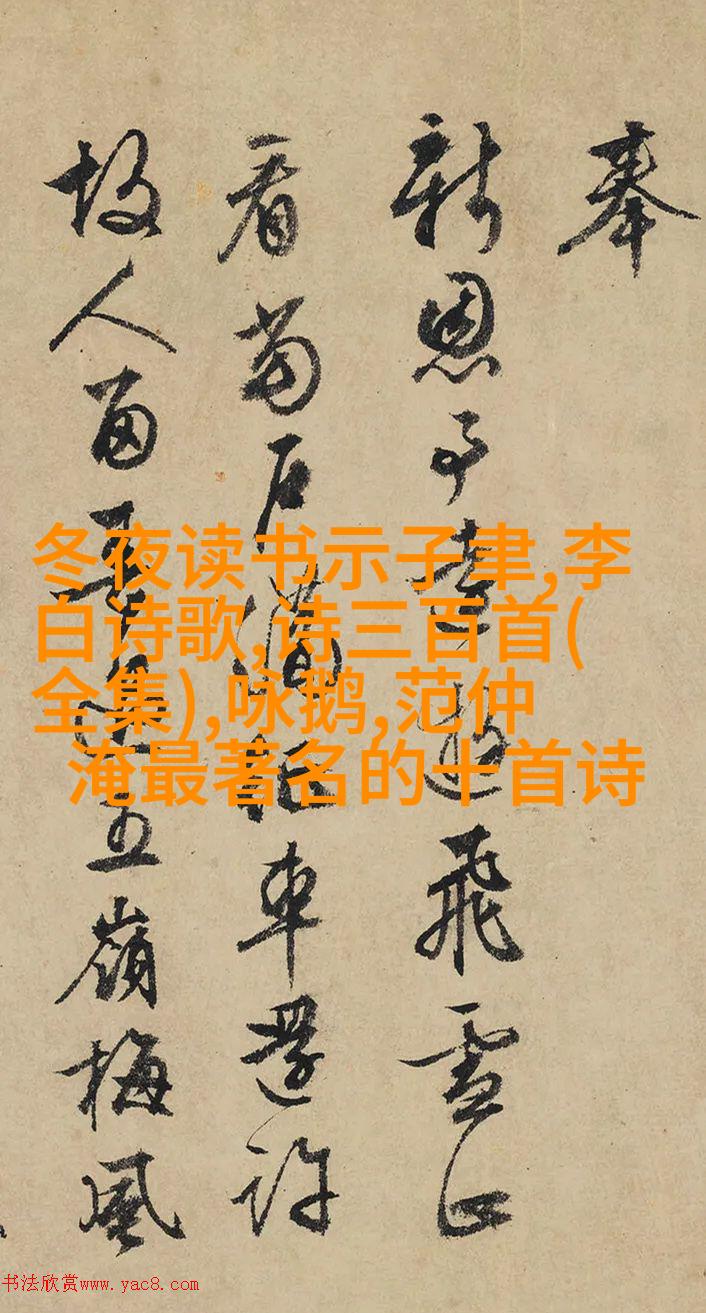 奉
新恩遊飛雪
看石滿征車還許
故人留五嶺梅風
冬夜读书示子聿,李
白诗歌,诗三百首(
全集),咏鹅,范仲
淹最著名的十首诗
书法欣赏www.yac8.com